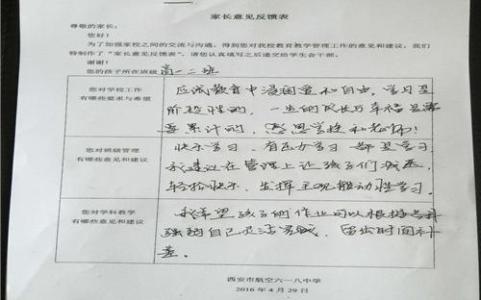 家长意见反馈表
尊敬的家长:
您好!
为了加强家校之间的交流与沟通,得到您对我校教育教学管理工作的意见和建议,我们
特制作了“家长意见反馈表”,请您认真填写之后递交给学生会干部。
谢谢!
您的孩子所在班级 高一二班
您对学校工作
有哪些要求与希望
应试教育中渗闻量和自由,学习是
阶段性的,一生的成长与幸福是需
要累计的,感恩学校和老师!
您对班级管理
有哪些意见和建议
快乐学习、有压力学习都是学习
我建议在管理上让孩子们减压,
轻松快乐,发挥主观能动性学习。
您对学科教学
有哪些意见和建议
我希望孩子的作业可以根据
强弱自己灵活完成,留出时间补
差。
西安市航空六一八中学
2016年4月29日